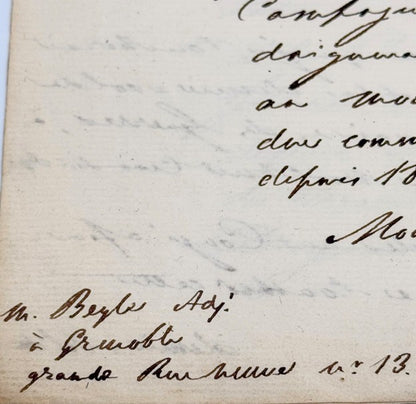 Campagn
daigner
au mo
due comm
depuis 18
Mo
m. Beyle Adj.
à Grenoble
grande Rue neuve n.º 13.